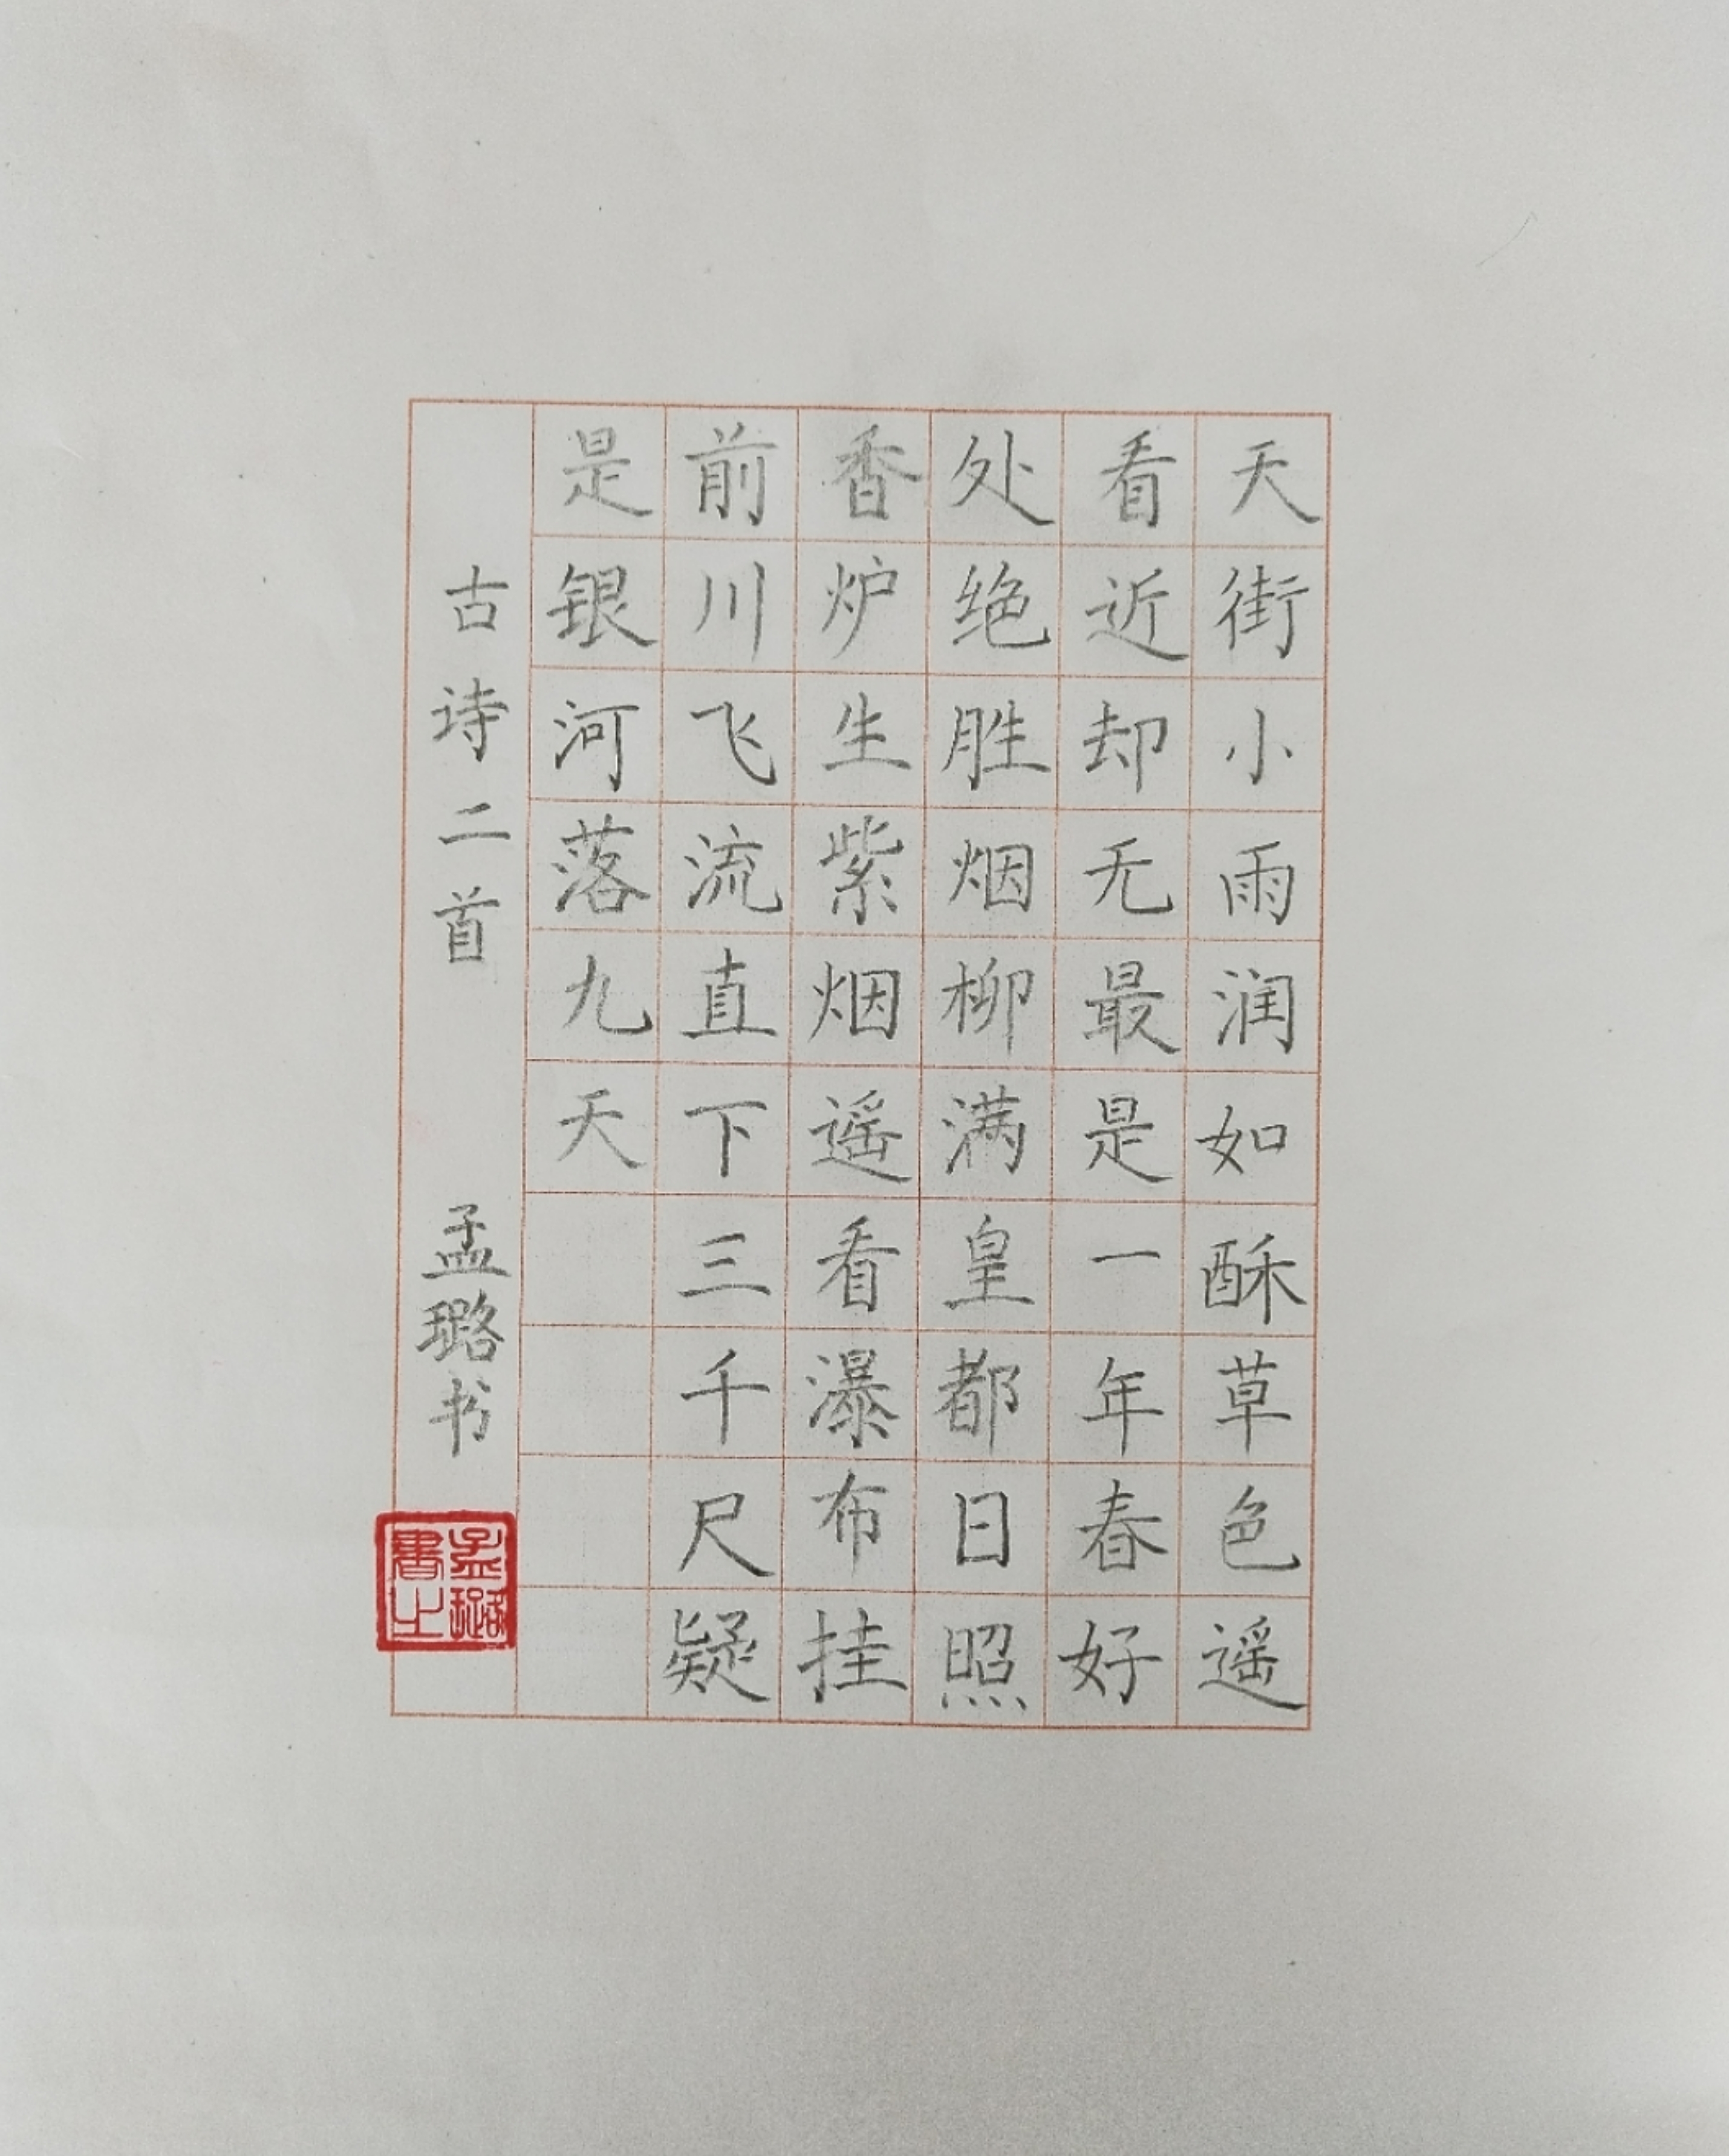 天街小雨润如酥草色遥
看近却无最是一年春好
处绝胜烟柳满皇都日照
香炉生紫烟遥看瀑布挂
前川飞流直下三千尺疑
是银河落九天
古诗二首 孟璐书
孟璐
書之